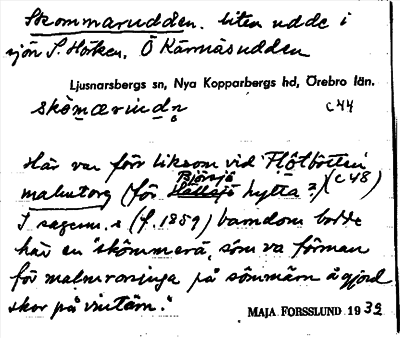 Skommarudden. liten udde i
sjön S. Hörken. Ö Kärnäsudden
Ljusnarsbergs sn, Nya Kopparbergs hd, Örebro län.
skömarud̥n C 44
Här var förr liksom vid Flötbotten
malmtorg (för Björsjö hytta?) (C 48)
I sagesm. s (f. 1859) barndom bodde
här en "skömmerä, som va förman
för malmrorsinga på sömmärn å gjord
skor på vintärn."
MAJA FORSSLUND 1932